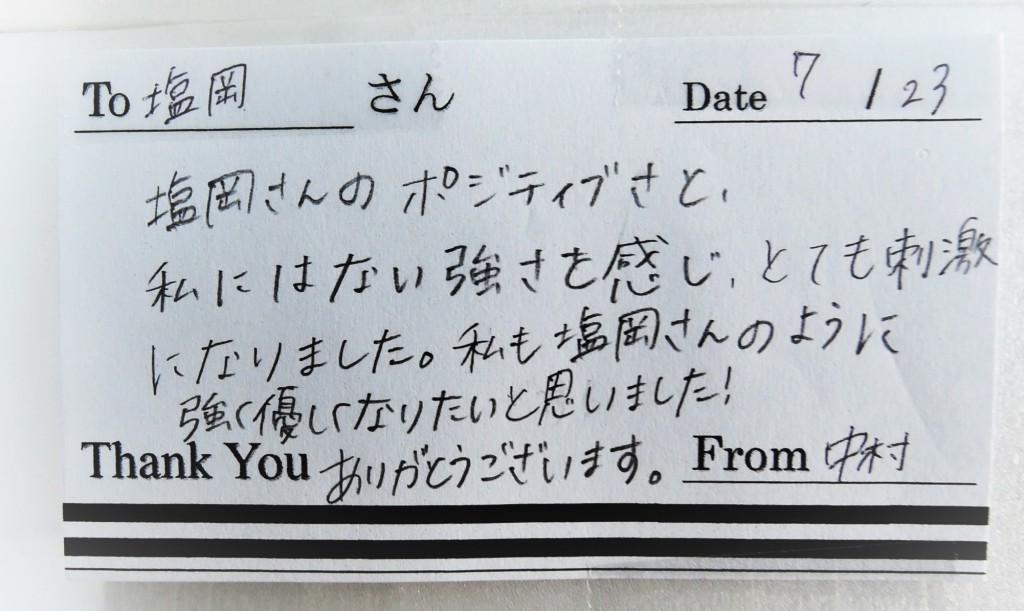 To 塩岡 さん Date 7 / 23
塩岡さんの ポジティブさと、
私にはない強さを感じ、とても刺激
になりました。私も塩岡さんのように
強く優しくなりたいと思いました!
Thank You ありがとうございます。 From 中村